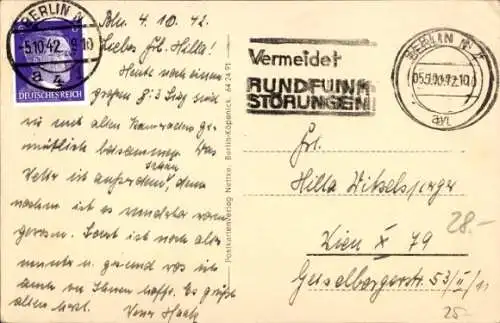 BERLIN N 4
-5.10.42 9-10
a z
DEUTSCHES REICH
Bln. 4.10.42
Liebes Frl. Hilla!
Heute nach einem
großen 8:3 Sieg sind
wir mit alten Kameraden ge-
mütlich beisammen. Das
Wetter ist außerdem schön, denn
gewesen. Sonst ist noch alles
munter u. gesund was ich
auch von Ihnen hoffe. Es grüßt
allerherzl.
Postkartenverlag Nettke, Berlin-Köpenick. 64 24 91
Vermeidet
RUNDFUNK
STÖRUNGEN
BERLIN N 4
Frl.
Hilla Witzelsperger
Wien X 79
Geiselbergerstr. 53/II/11
28.-
25-